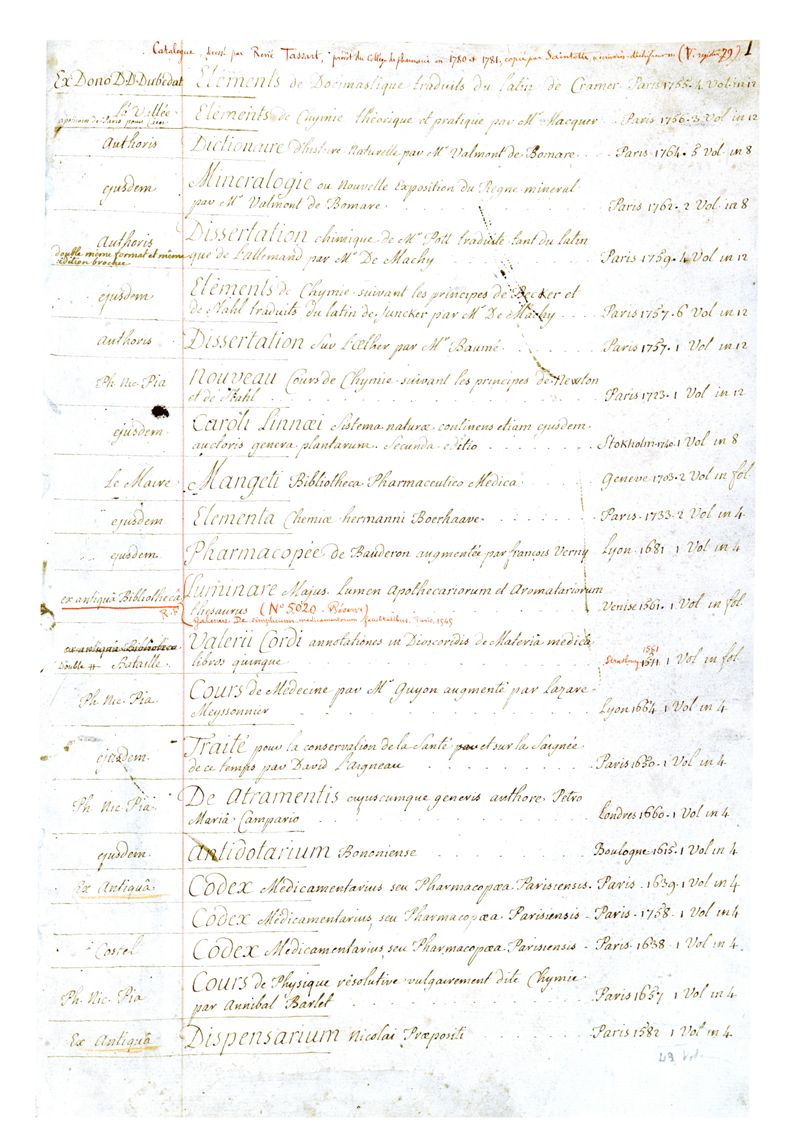 Catalogue, dressé par René Tassart, prévôt du Collège de pharmacie en 1780 et 1781, copié par Saintotte (V. registre 79) 1
Ex Dono D.D. Dubédat Eléments de Docimastique traduits du latin de Cramer Paris 1755. 4 Vol in 12
Eléments de Chymie théorique et pratique par Mr Macquer Paris 1756. 3 Vol in 12
Authoris Dictionaire d'histoire Naturelle par Mr Valmont de Bomare Paris 1764. 5 Vol in 8
ejusdem Mineralogie ou Nouvelle Exposition du Regne mineral
par Mr Valmont de Bomare Paris 1762. 2 Vol in 8
Authoris Dissertation chimique de Mr Pott traduite tant du latin
double meme format et même que de l'allemand par Mr De Machy Paris 1759. 4 Vol in 12
édition brochée
ejusdem Eléments de Chymie suivant les principes de Becker et
de Stahl traduits du latin de Juncker par Mr De Machy Paris 1757. 6 Vol in 12
authoris Dissertation sur l'æther par Mr Baumé Paris 1757. 1 Vol in 12
Ph. Nic. Pia Nouveau Cours de Chymie suivant les principes de Newton
et de Stahl Paris 1723. 1 Vol in 12
ejusdem Caroli Linnæi Sistema naturæ continens etiam ejusdem
auctoris genera plantarum. Secunda editio Stokholm 1740. 1 Vol in 8
Le Maire Mangeti Bibliotheca Pharmaceutico Medica Geneve 1703. 2 Vol in fol
ejusdem Elementa Chemiæ hermanni Boerhaave Paris 1733. 2 Vol in 4
ejusdem Pharmacopée de Bauderon augmenté par françois Verny Lyon 1681 1 Vol in 4
ex antiquâ Bibliotheca Luminare Majus. Lumen Apothecariorum et Aromatariorum
R.P. thesaurus (No 5020. Réserve) Venise 1561. 1 Vol in fol
De simplicium medicamentorum facultatibus. Paris, 1545
ex antiquâ Bibliotheca Valerii Cordi annotationes in Dioscoridis de Materiâ medicâ
Double # Bataille libros quinque Strasburg 1561 1511 1 Vol in fol
Ph. Nic. Pia Cours de Médecine par Mr Guyon augmenté par Lazare
Meyssonnier Lyon 1664 1 Vol in 4
ejusdem Traité pour la conservation de la Santé par et sur la Saignée
de ce temps par David Laigneau Paris 1650. 1 Vol in 4
Ph. Nic. Pia De Atramentis cujuscumque generis authore Petro
Mariâ Campario Londres 1660. 1 Vol in 4
ejusdem Antidotarium Bononiense Boulogne 1615. 1 Vol in 4
Ex Antiquâ Codex Médicamentarius, seu Pharmacopæa Parisiensis. Paris. 1639. 1 Vol in 4
Codex Médicamentarius, seu Pharmacopæa Parisiensis Paris. 1758. 1 Vol in 4
Costel Codex Médicamentarius, seu Pharmacopæa Parisiensis Paris 1638 1 Vol in 4
Ph. Nic. Pia Cours de Physique résolutive vulgairement dite Chymie
par Annibal Barlet Paris 1657 1 Vol in 4
Ex Antiquâ Dispensarium Nicolai Præpositi Paris 1582 1 Vol in 4
49 Vol.